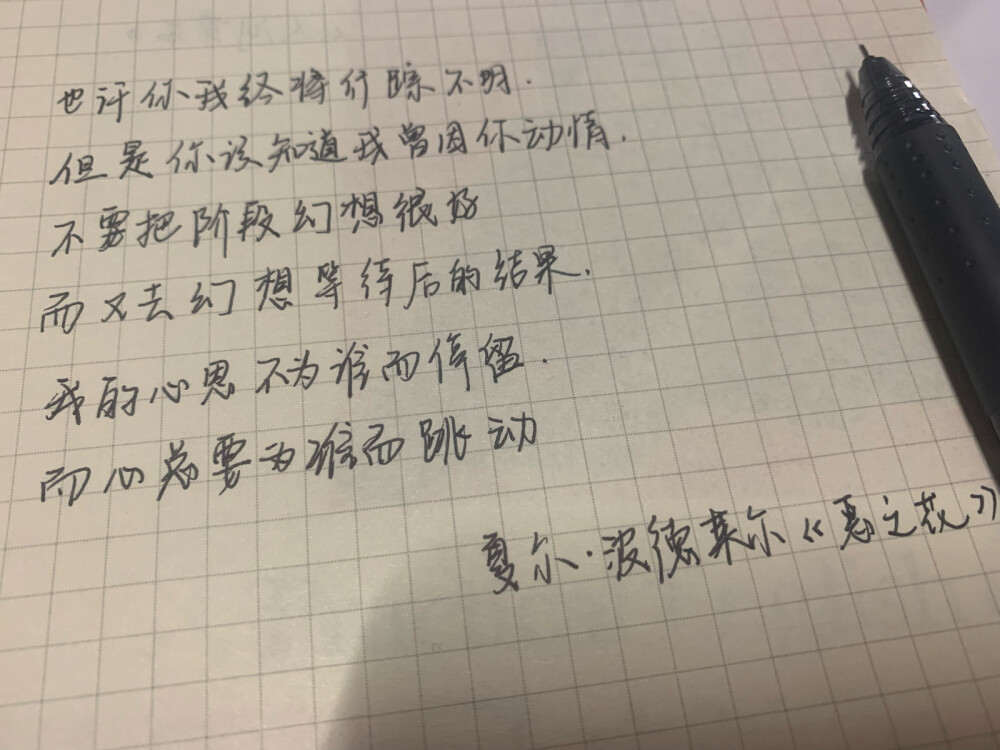 也许你我终将行踪不明.
但是你该知道我曾因你动情.
不要把阶段幻想很好
而又去幻想等待后的结果.
我的心思不为谁而停留.
而心总要为谁而跳动
夏尔·波德莱尔《恶之花》